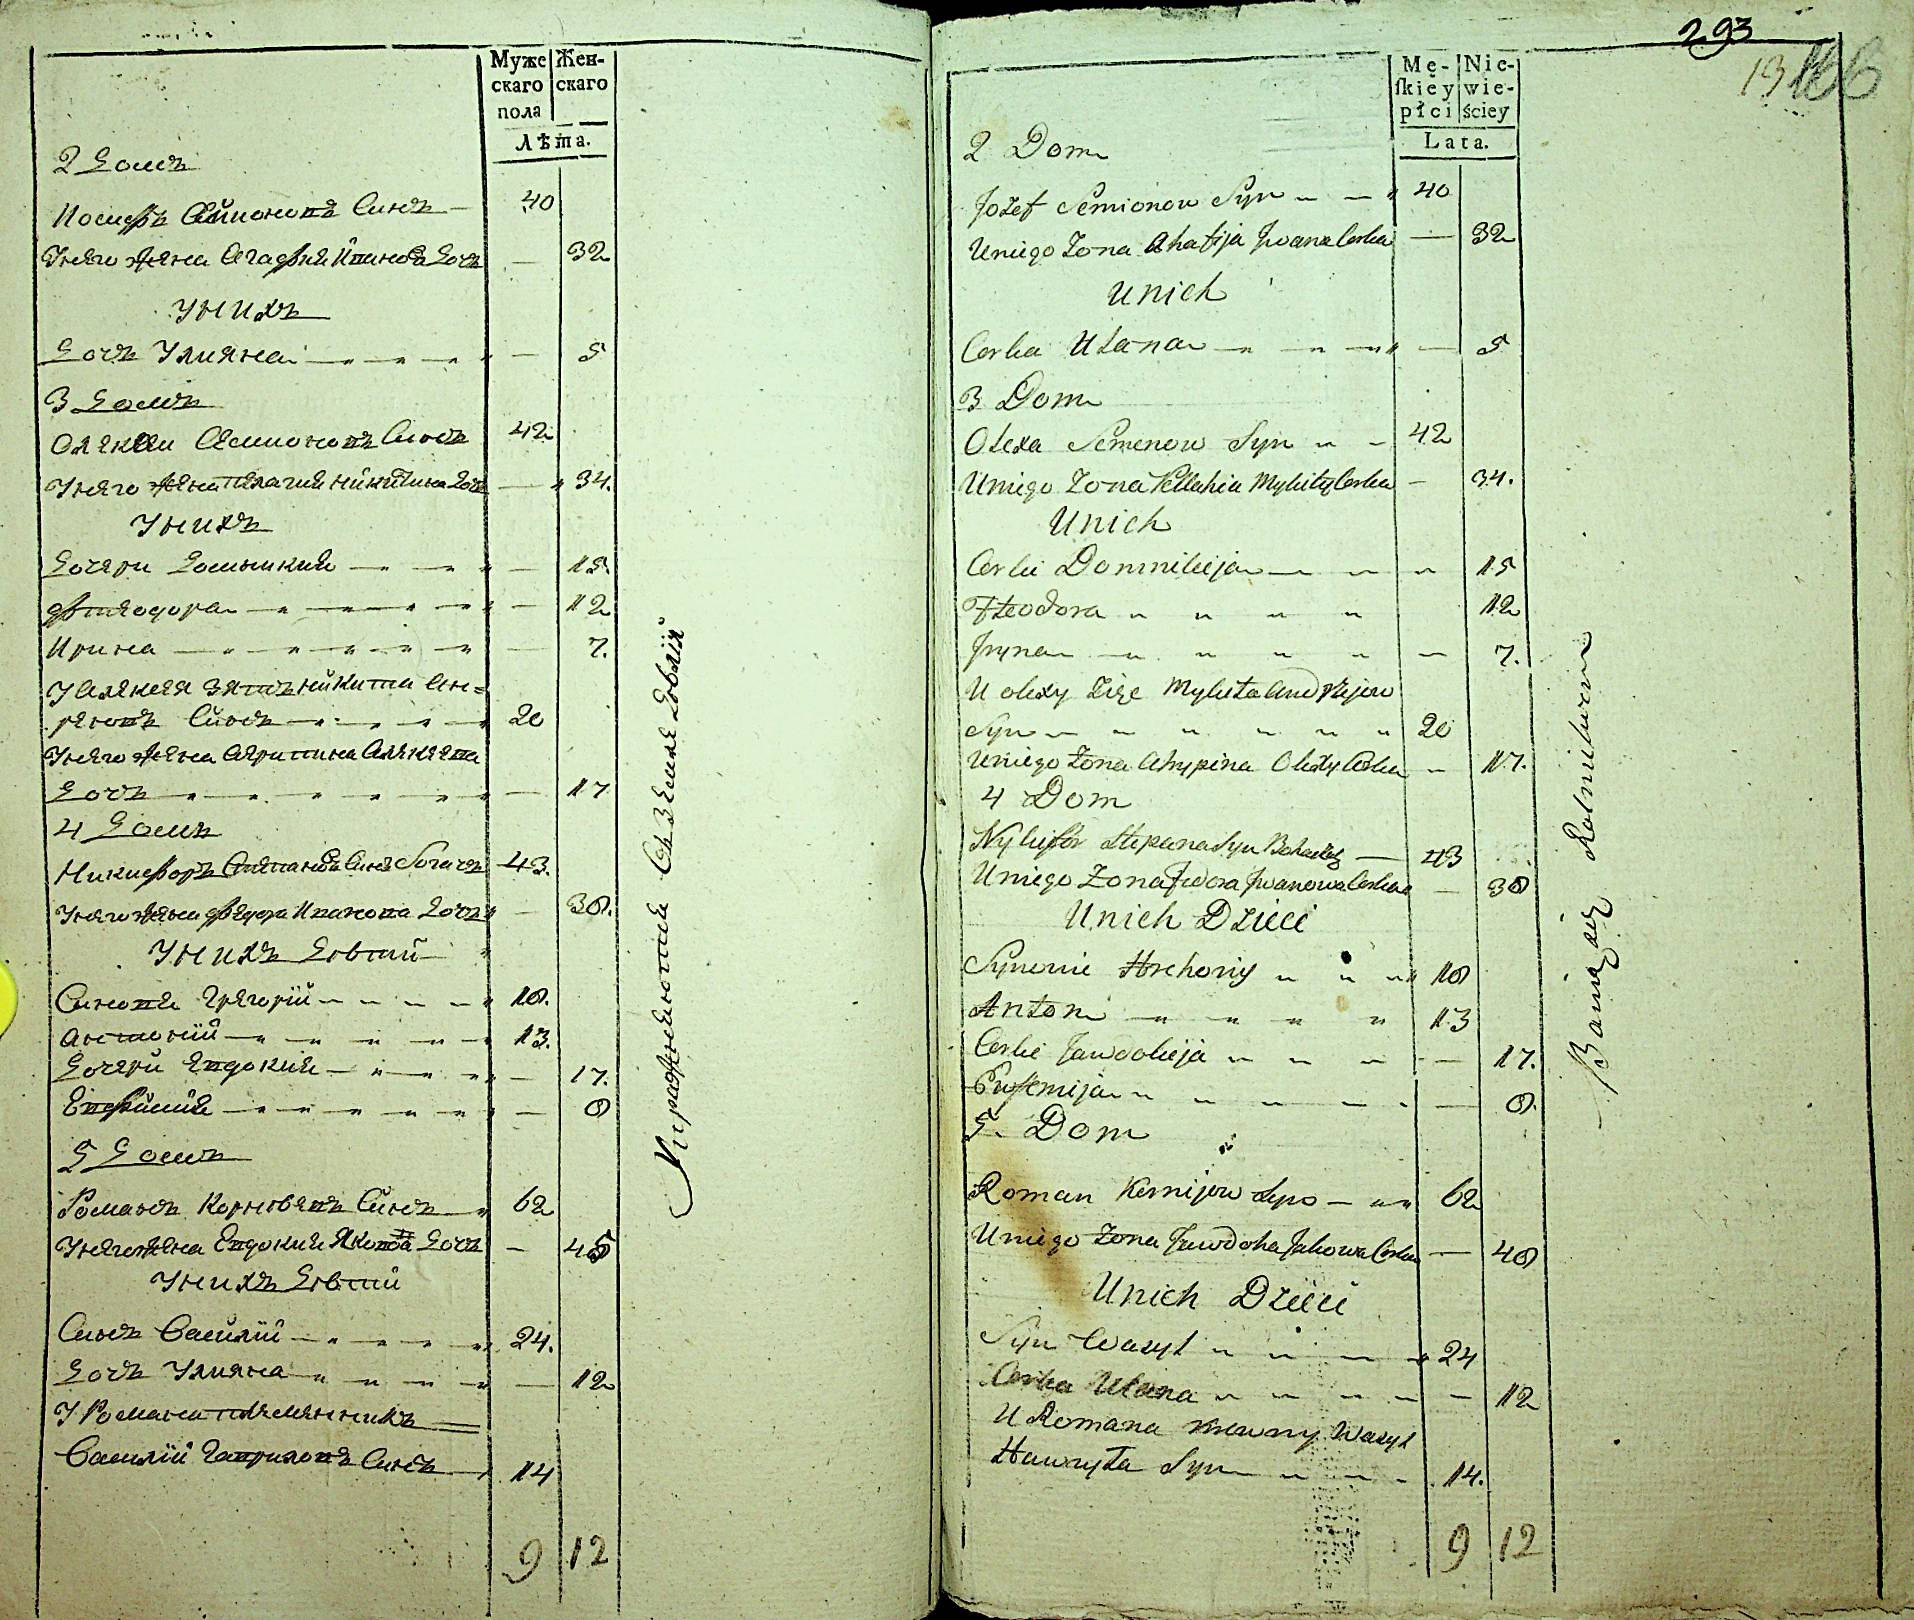 Муже
скаго
пола
Жен-
скаго
Лѣта.
2 Домъ
Иосифъ Симоновъ Синъ — 40
Унего жена Агафия Иванова Дочъ — 32
Унихъ
Дочъ Улияна — „ „ „ — 5
3 Домъ
Олекса Семионовъ Синъ 42
Унего жена Пелагия Никитина Дочъ — „ 34.
Унихъ
Дочери Домникия — „ „ „ — 15.
Фтеодора — „ „ „ — 12
Ирина — „ „ „ „ — 7.
У Алексея зять Никита Ан=
реювъ Синъ — „ „ „ 20
Унего жена Агрипина Алексева
Дочъ — „ „ „ „ — 17
4 Домъ
Никифоръ Степановъ Синъ Богачъ — 43.
Унего жена Федора Иванова Дочъ — 38.
Унихъ Дѣти
Синове Григорій „ „ „ „ 18.
Антоній — „ „ „ „ 13.
Дочери Евдокия — „ „ „ — 17.
Евфимия — „ „ „ „ — 8
5 Домъ
Романъ Корнѣевъ Синъ — „ 62
Унего жена Евдокия Якова Дочъ — 48
Унихъ Дѣти
Синъ Василій — „ „ „ 24.
Дочъ Улияна — „ „ „ — 12
У Романа племенникъ
Василій Гавриловъ Синъ — 14
9 12
Упражняются
293
13
Mę-
ſkiey
płci
Nie-
wie-
ściey
Lata.
2 Dom
Jozef Semionow Syn „ — „ 40
Uniego Zona Ahafija Jwana Corka — 32
Unich
Corka Ulana — „ „ „ — 5
3 Dom
Olexa Semenow Syn „ — 42
Uniego Zona Pellahia Mykity Corka — 34.
Unich
Corki Domnikija — „ „ „ 15
Fteodora „ „ „ „ 12
Jryna — „ „ „ „ — 7.
U olexy Zięc Mykita Andrzejow
Syn „ „ „ „ „ 20
Uniego Zona Ahrypina Olexy Corka — 17.
4 Dom
Nykifor Stepana Syn Bohacz — 43
Uniego Zona Fedora Jwanowa Corka — 38
Unich Dzieci
Synowie Hrehoriy „ „ „ 18
Antoni — „ „ „ „ 13
Corki Jawdokija „ „ „ — 17.
Eufemija „ „ „ „ — 8.
5. Dom
Roman Kornijow Syn — „ „ 62
Uniego Zona Jawdoha Jakowa Corka — 48
Unich Dzieci
Syn Wasyl „ „ — „ 24
Corka Ulana „ „ „ „ — 12
U Romana Krewny Wasyl
Hawryła Syn — „ „ „ 14.
9 12
Bawią się Rolnictwem